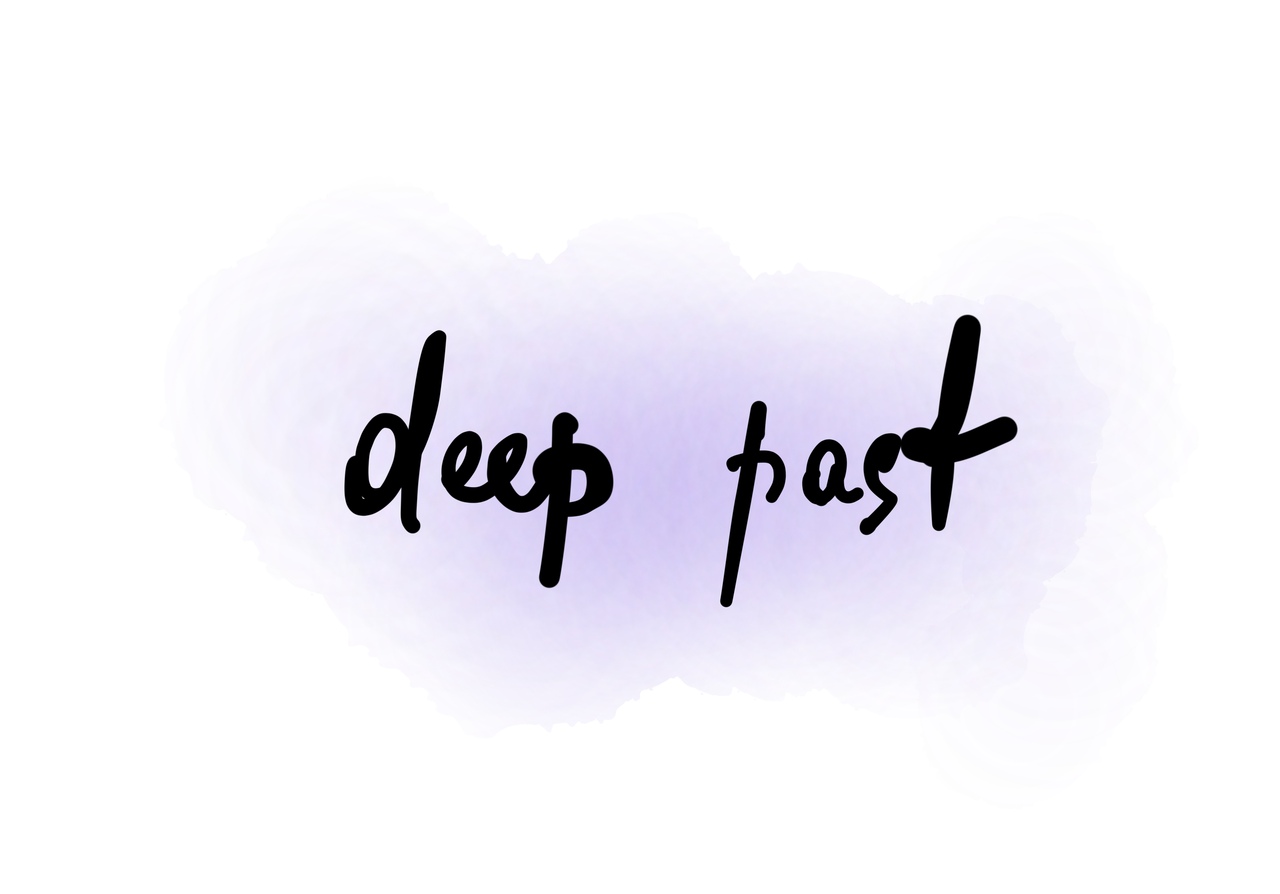 deep past